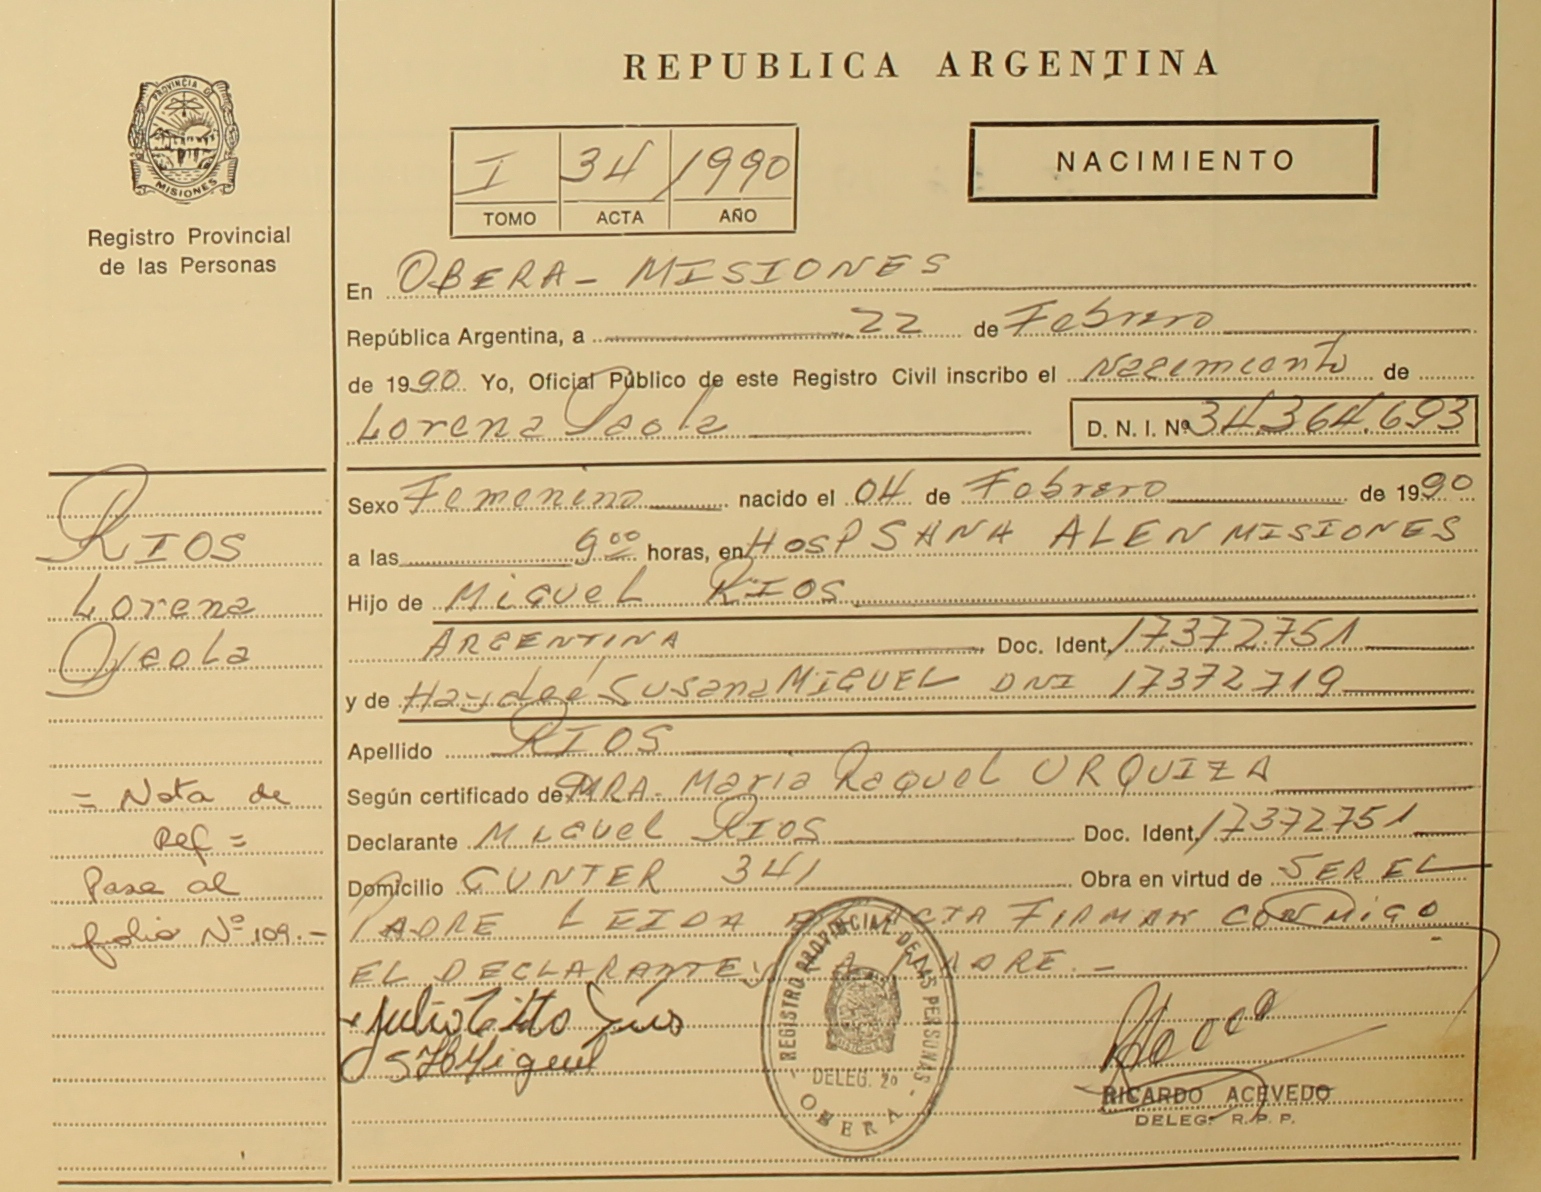 REPUBLICA ARGENTINA
PROVINCIA D
MISIONES
Registro Provincial
de las Personas
I 34 1990
TOMO ACTA AÑO
NACIMIENTO
En OBERA - MISIONES
República Argentina, a 22 de Febrero
de 1990 Yo, Oficial Público de este Registro Civil inscribo el Nacimiento de
Lorena Paola
D. N. I. Nº 34.364.693
Sexo Femenino nacido el 04 de Febrero de 1990
a las 9 00 horas, en HOSP SANA ALEN MISIONES
Hijo de Miguel RIOS
ARGENTINA Doc. Ident. 17372.751
y de Haydeé Susana MIGUEL DNI 17372719
Apellido RIOS
Según certificado de MRA. Maria Raquel URQUIZA
Declarante Miguel RIOS Doc. Ident. 17372751
Domicilio GUNTER 341 Obra en virtud de SER EL
PADRE LEIDA ACTA FIRMAN CONMIGO
EL DECLARANTE MADRE. -
RIOS
Lorena
Paola
= Nota de
Ref =
Pasa al
folio Nº 109.-
Julio
S H Miguel
REGISTRO PROVINCIAL DE LAS PERSONAS
DELEG. 2º
OBERA
RICARDO ACEVEDO
DELEG. R. P. P.